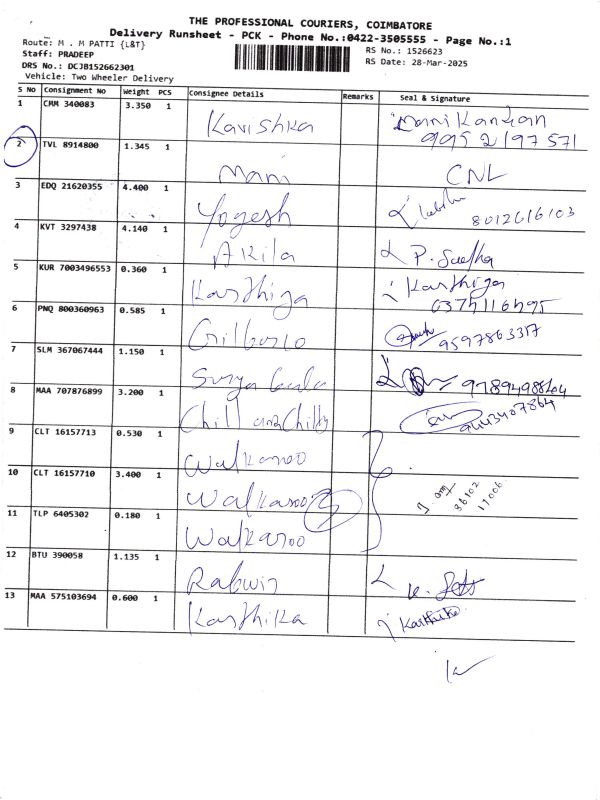 THE PROFESSIONAL COURIERS, COIMBATORE
Delivery Runsheet - PCK - Phone No.:0422-3505555 - Page No.:1
Route: M . M PATTI {L&T}
Staff: PRADEEP
RS No.: 1526623
DRS No.: DCJB152662301
RS Date: 28-Mar-2025
Vehicle: Two Wheeler Delivery
S No Consignment No Weight PCS Consignee Details Remarks Seal & Signature
1 CMM 340083 3.350 1 Kavishka Manikandan
9952197571
2 TVL 8914800 1.345 1 Mani CNL
3 EDQ 21620355 4.400 1 Yogesh 8012616103
4 KVT 3297438 4.140 1 Akila P. Sudha
5 KUR 7003496553 0.360 1 Karthiga Karthiga
6 PNQ 800360963 0.585 1 9597863317
7 SLM 367067444 1.150 1 Surya
8 MAA 707876899 3.200 1 Chill and Chilly 9443407864
9 CLT 16157713 0.530 1 Walkaroo
10 CLT 16157710 3.400 1 Walkaroo
11 TLP 6405302 0.180 1 Walkaroo
12 BTU 390058 1.135 1
13 MAA 575103694 0.600 1 Karthika Karthika